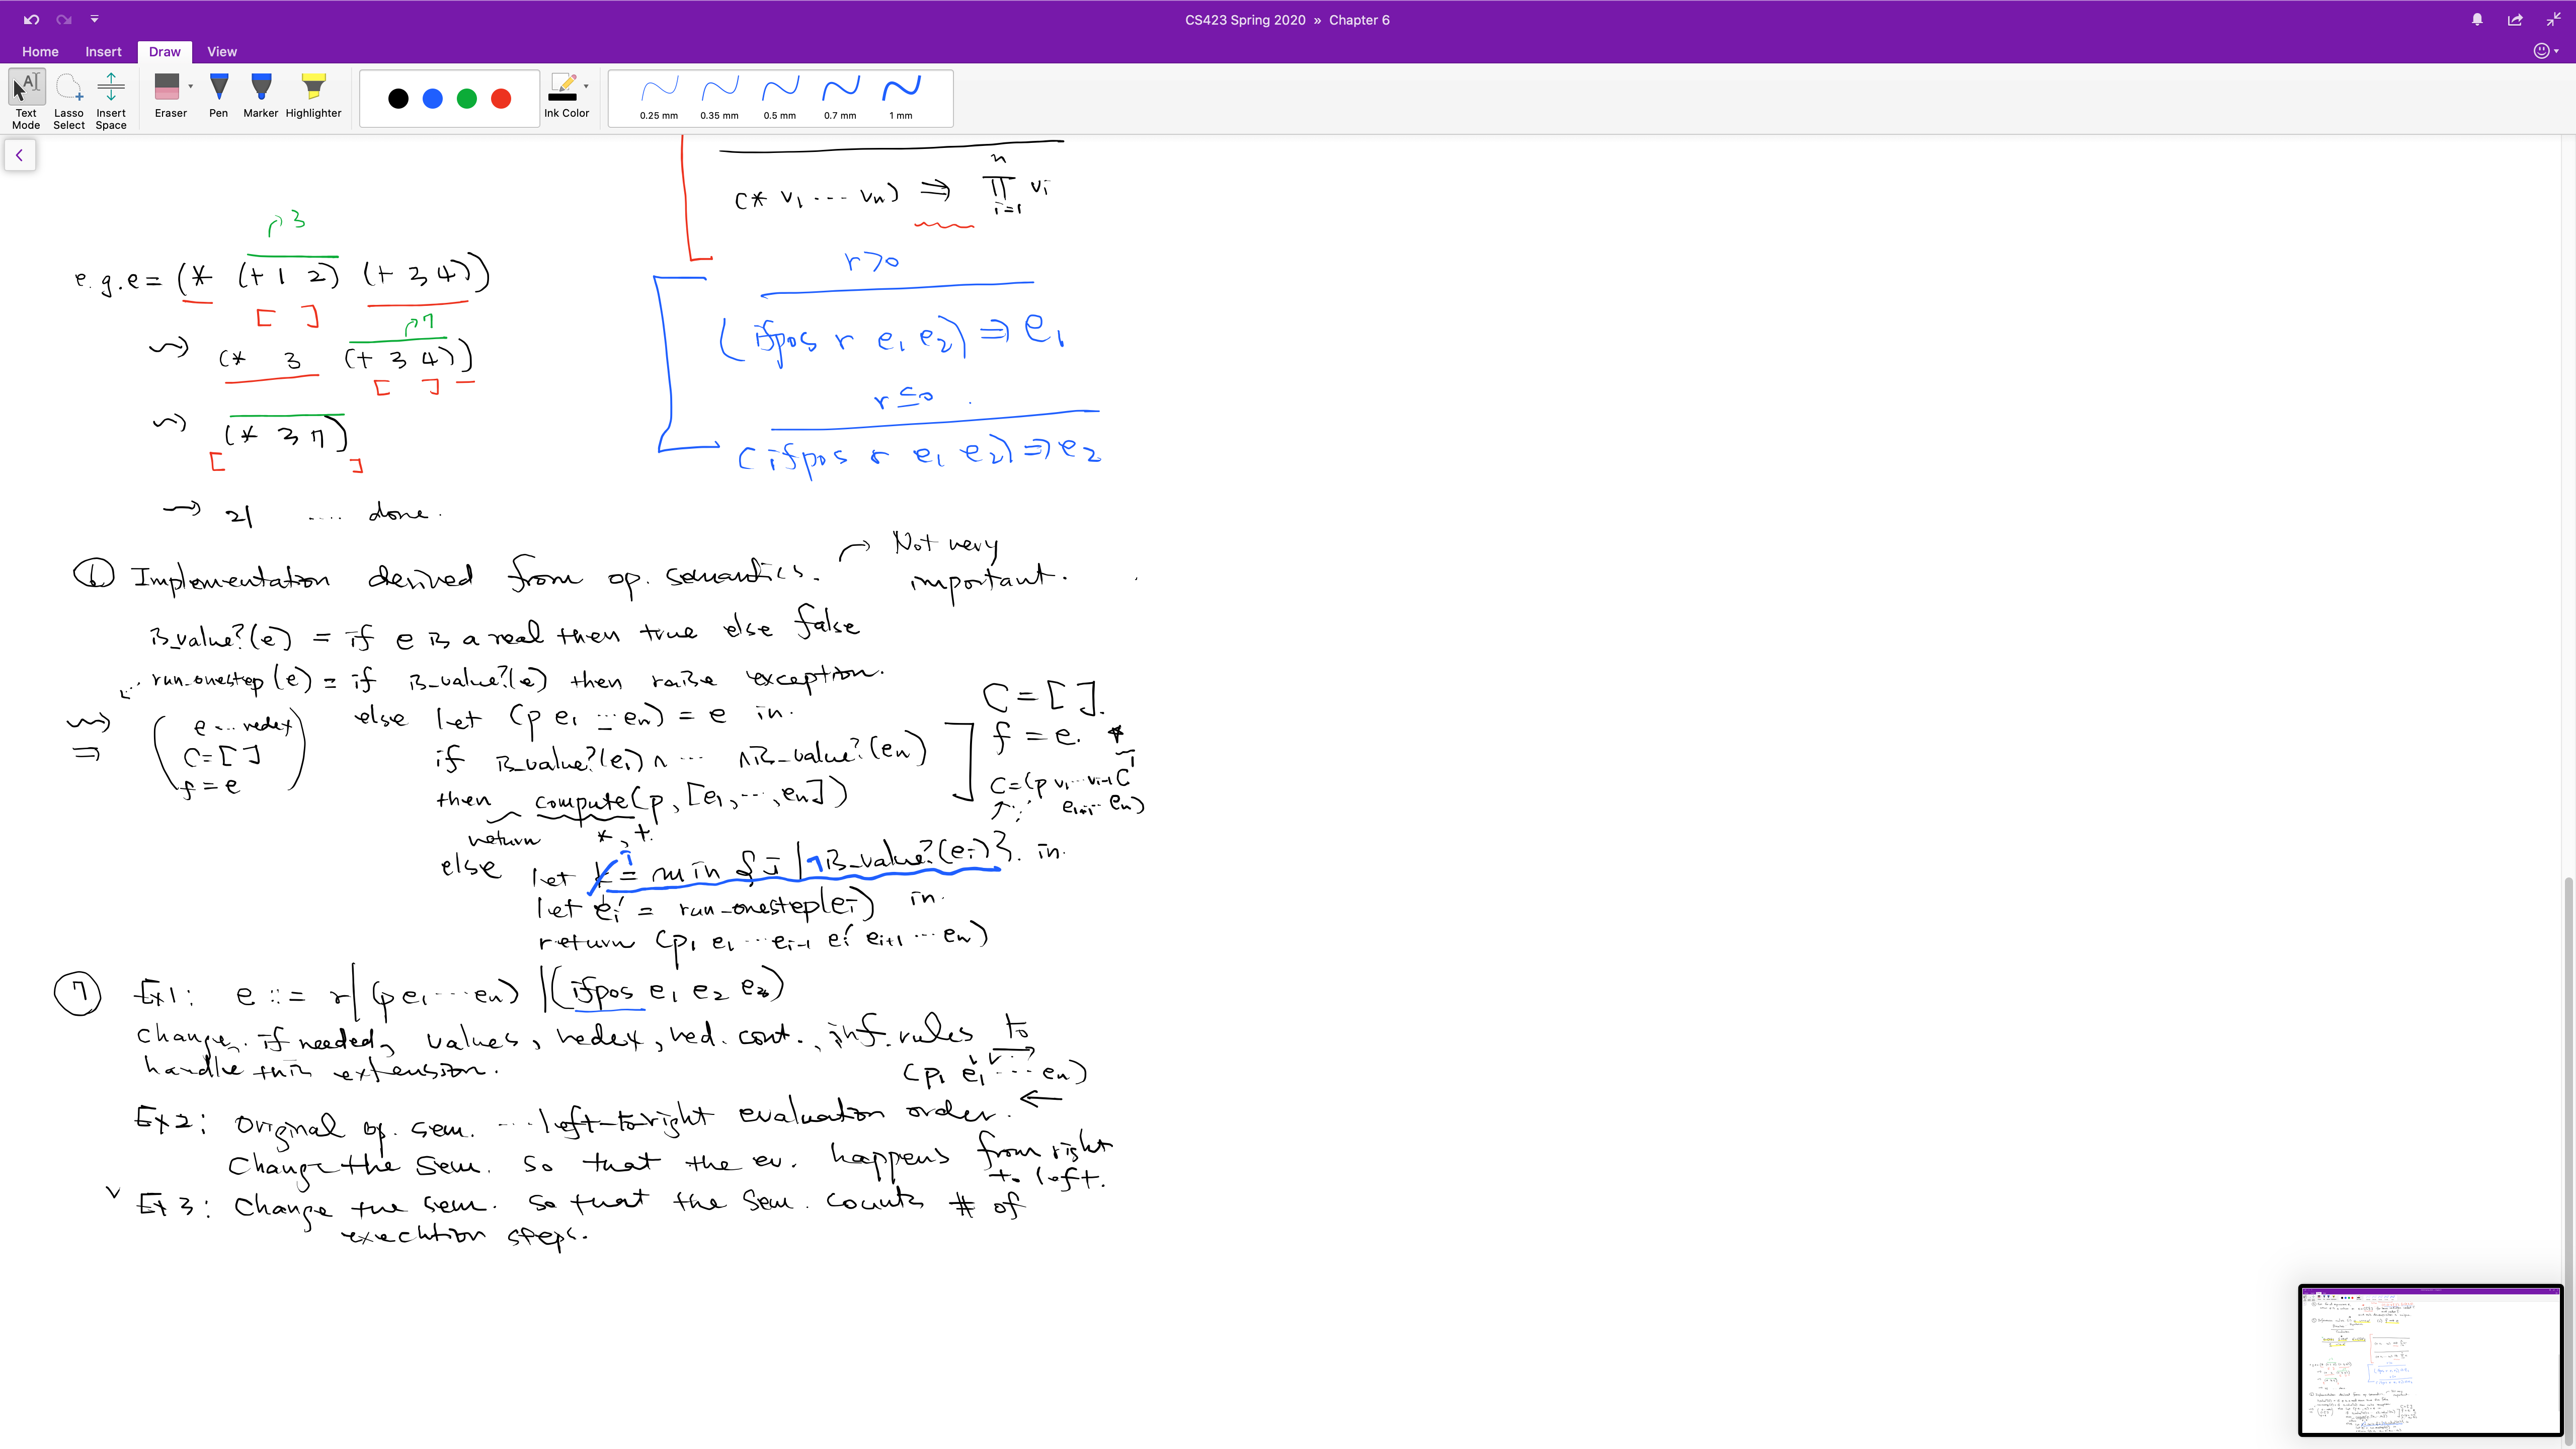 CS423 Spring 2020 » Chapter 6
Home Insert Draw View
Text Mode
Lasso Select
Insert Space
Eraser
Pen
Marker
Highlighter
Ink Color
0.25 mm 0.35 mm 0.5 mm 0.7 mm 1 mm
n
(* v1 ... vn) ⇒ ∏ vi
i=1
3
e.g. e = (* (+ 1 2) (+ 3 4))
[ ]
7
⇝ (* 3 (+ 3 4))
[ ]
⇝ (* 3 7)
[ ]
⇝ 21 .... done.
r>0
(ifpos r e1 e2) ⇒ e1
r≤0
(ifpos r e1 e2) ⇒ e2
⑥ Implementation derived from op. semantics. → Not very important.
is_value?(e) = if e is a real then true else false
run-onestep(e) = if is_value?(e) then raise exception.
else let (p e1 ... en) = e in
if is_value?(e1) ∧ ... ∧ is_value?(en)
then compute(p, [e1, ..., en])
return *, +.
⇝
⇒
(e ... redex
C=[ ]
f=e)
C=[ ].
f=e.
C=(p v1 ... vi-1 C'
ei+1 ... en)
else let i = min {j | ¬is_value?(ei)}. in
let ei' = run-onestep(ei) in
return (p, e1 ... ei-1 ei' ei+1 ... en)
⑦ Ex1: e ::= r | (p e1 ... en) | (ifpos e1 e2 e3)
Change, if needed, values, redex, red. cont., inf. rules to
handle this extension.
(p, e1 ... en)
Ex2: Original op. sem. ... left-to-right evaluation order. ←
Change the sem. so that the ev. happens from right
to left.
v Ex3: Change the sem. so that the sem. counts # of
execution steps.